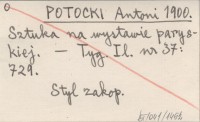 POTOCKI Antoni 1900.
Sztuka na wystawie parys-
kiej. — Tyg. Il. nr 37:
729.
Styl zakop.